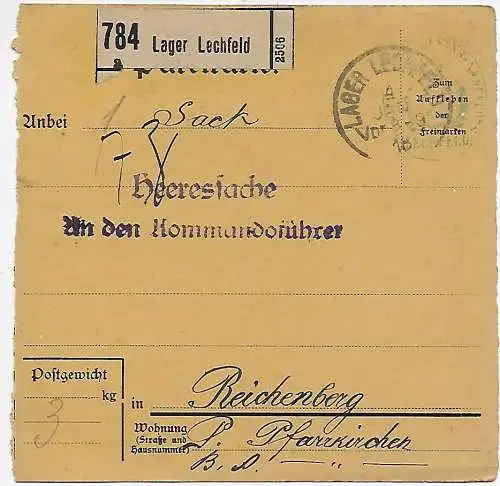 784 Lager Lechfeld 2506
LAGER LECHFELD
Zum
Aufkleben
der
Freimarken
Anbei 1 Sack
Heeressache
An den Kommandoführer
Postgewicht
kg
3
in Reichenberg
Wohnung
(Straße und
Hausnummer)
P. Pfarrkirchen
B. A. — " —